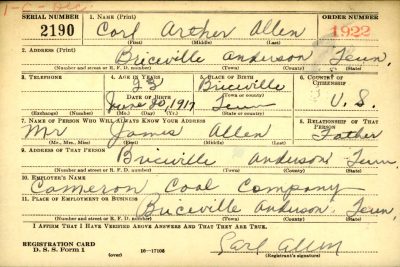 SERIAL NUMBER 1. NAME (Print) ORDER NUMBER
2190 Carl Arther Allen 1922
(First) (Middle) (Last)
2. ADDRESS (Print)
Briceville Anderson Tenn.
(Number and street or R. F. D. number) (Town) (County) (State)
3. TELEPHONE 4. AGE IN YEARS 5. PLACE OF BIRTH 6. COUNTRY OF CITIZENSHIP
23 Briceville
DATE OF BIRTH (Town or county)
June 20, 1917 Tenn U. S.
(Exchange) (Number) (Mo.) (Day) (Yr.) (State or country)
7. NAME OF PERSON WHO WILL ALWAYS KNOW YOUR ADDRESS 8. RELATIONSHIP OF THAT PERSON
Mr James Allen Father
(Mr., Mrs., Miss) (First) (Middle) (Last)
9. ADDRESS OF THAT PERSON
Briceville Anderson Tenn.
(Number and street or R. F. D. number) (Town) (County) (State)
10. EMPLOYER'S NAME
Cameron Coal Company
11. PLACE OF EMPLOYMENT OR BUSINESS
Briceville Anderson Tenn.
(Number and street or R. F. D. number) (Town) (County) (State)
I AFFIRM THAT I HAVE VERIFIED ABOVE ANSWERS AND THAT THEY ARE TRUE.
REGISTRATION CARD
D. S. S. Form 1 16—17105 Carl Allen
(over) (Registrant's signature)